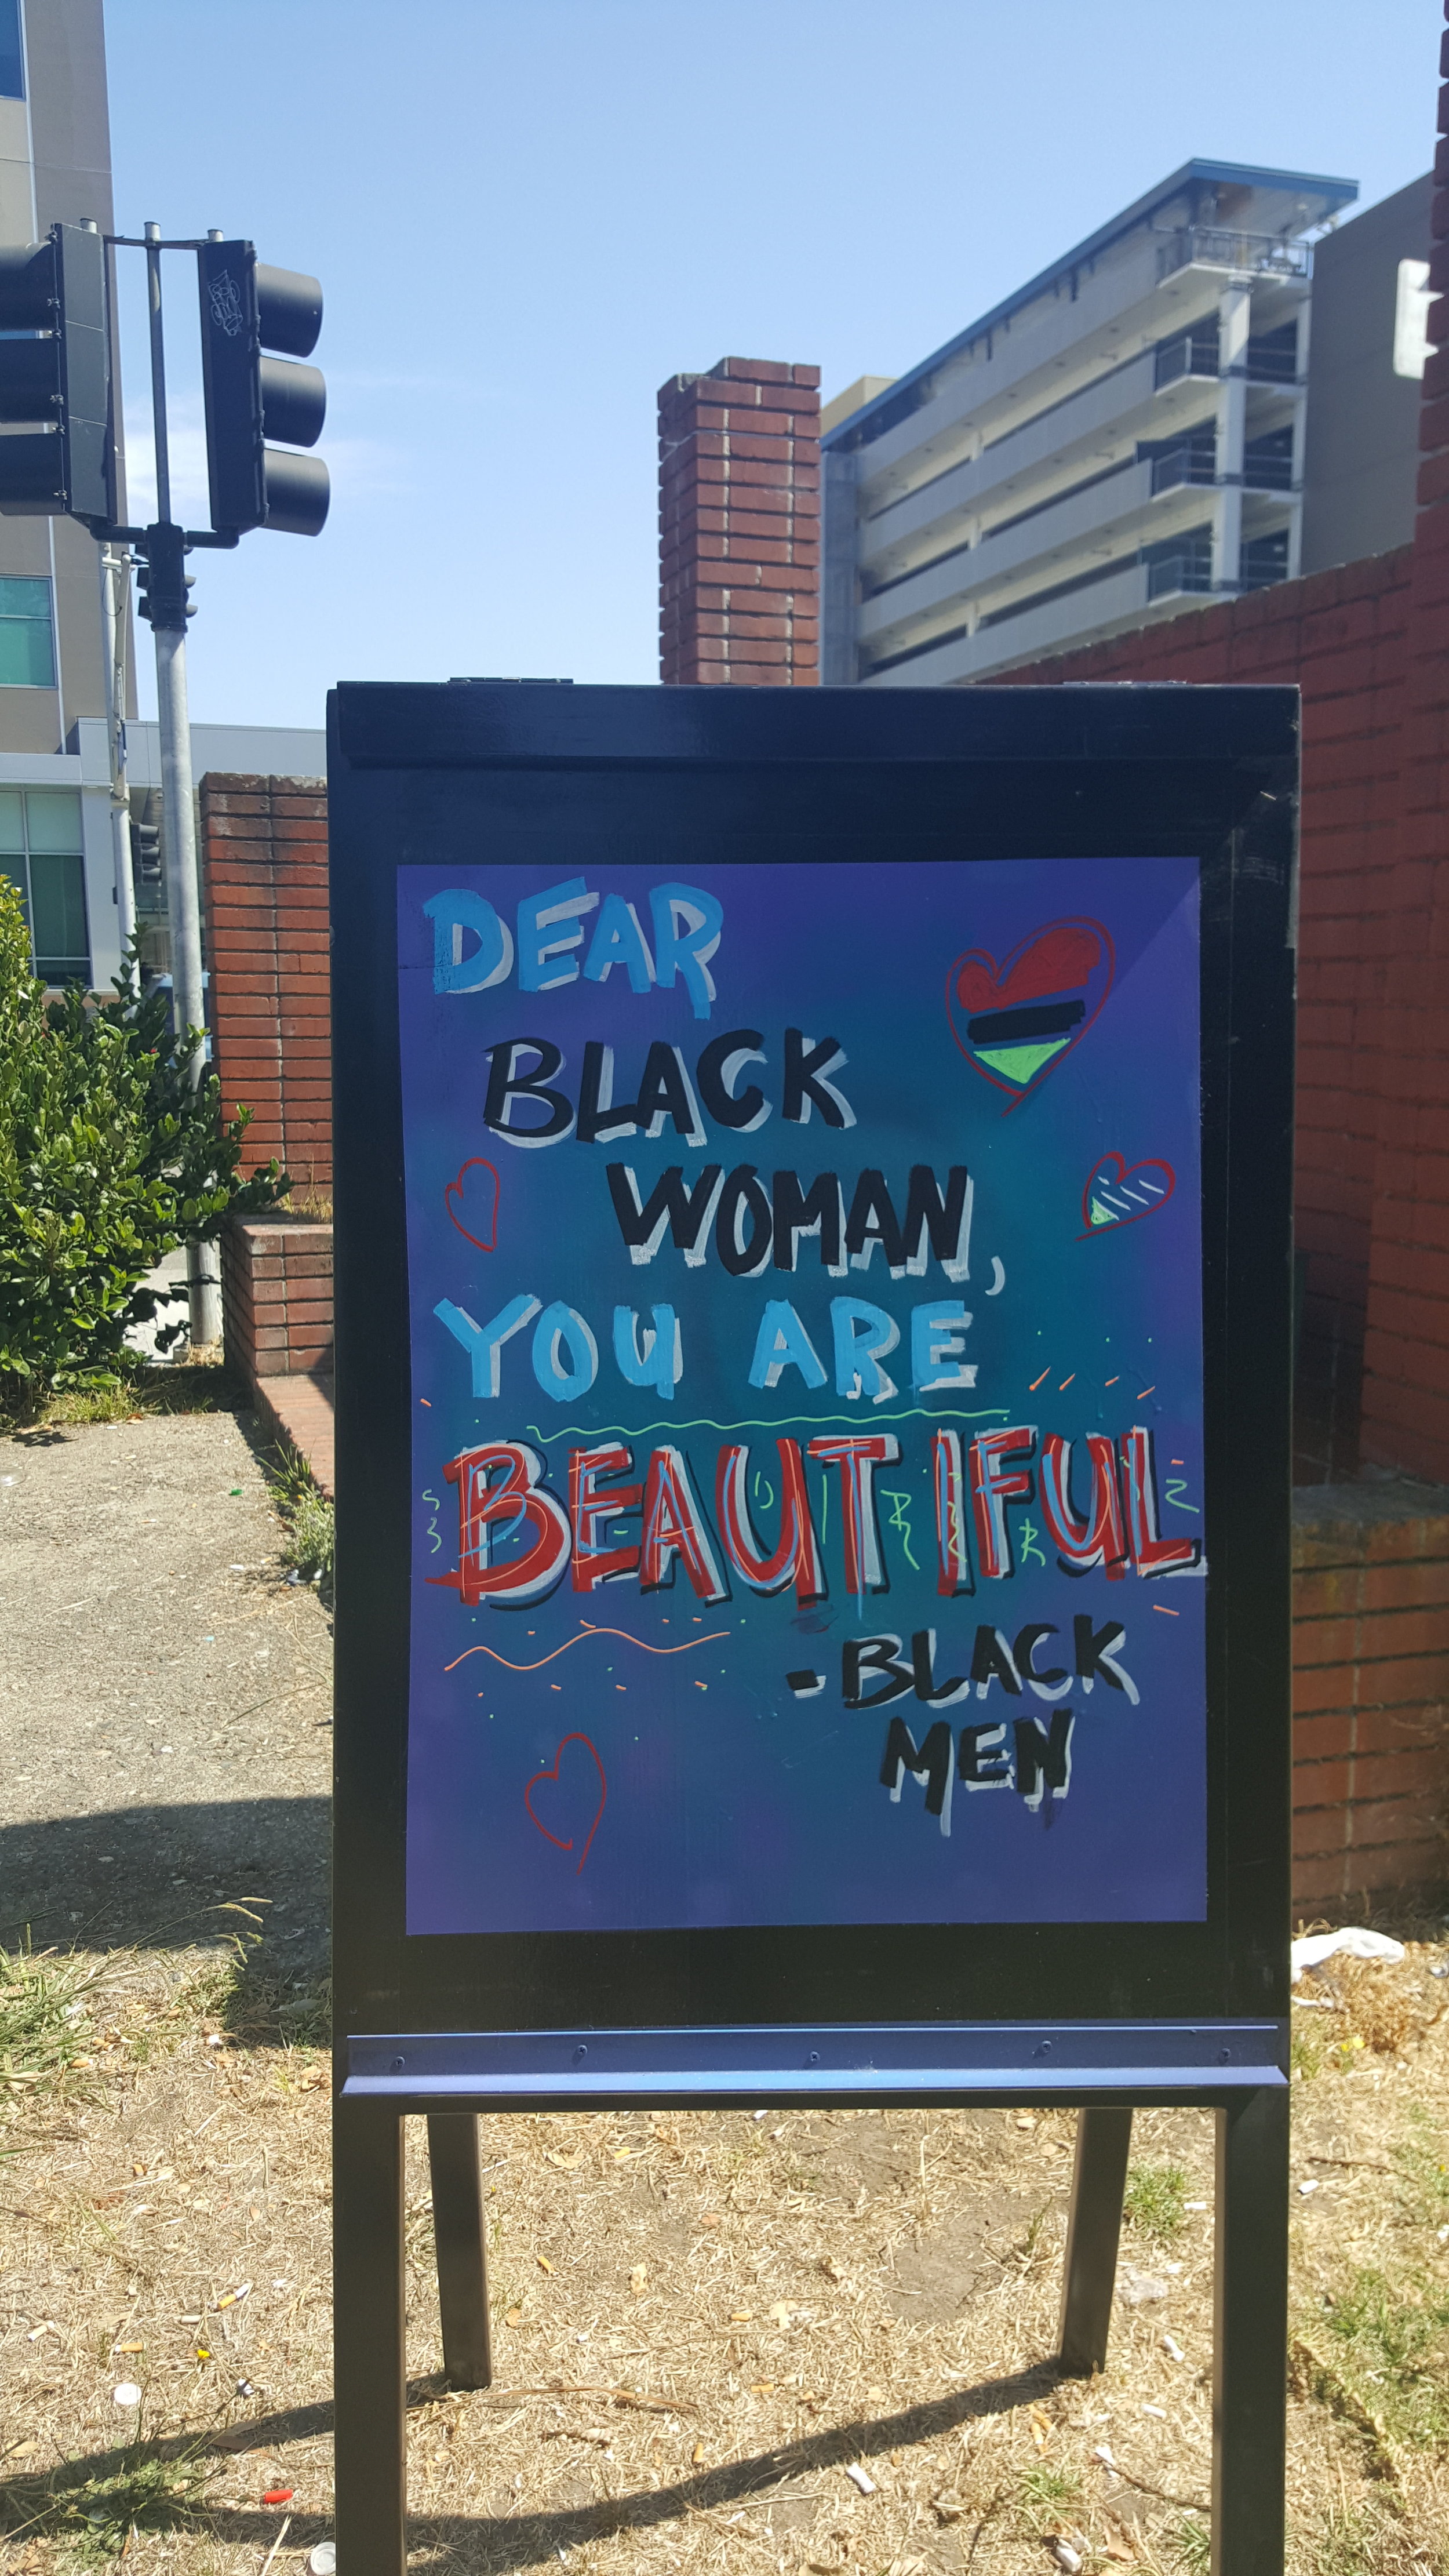 DEAR
BLACK
WOMAN,
YOU ARE
BEAUTIFUL
-BLACK
MEN